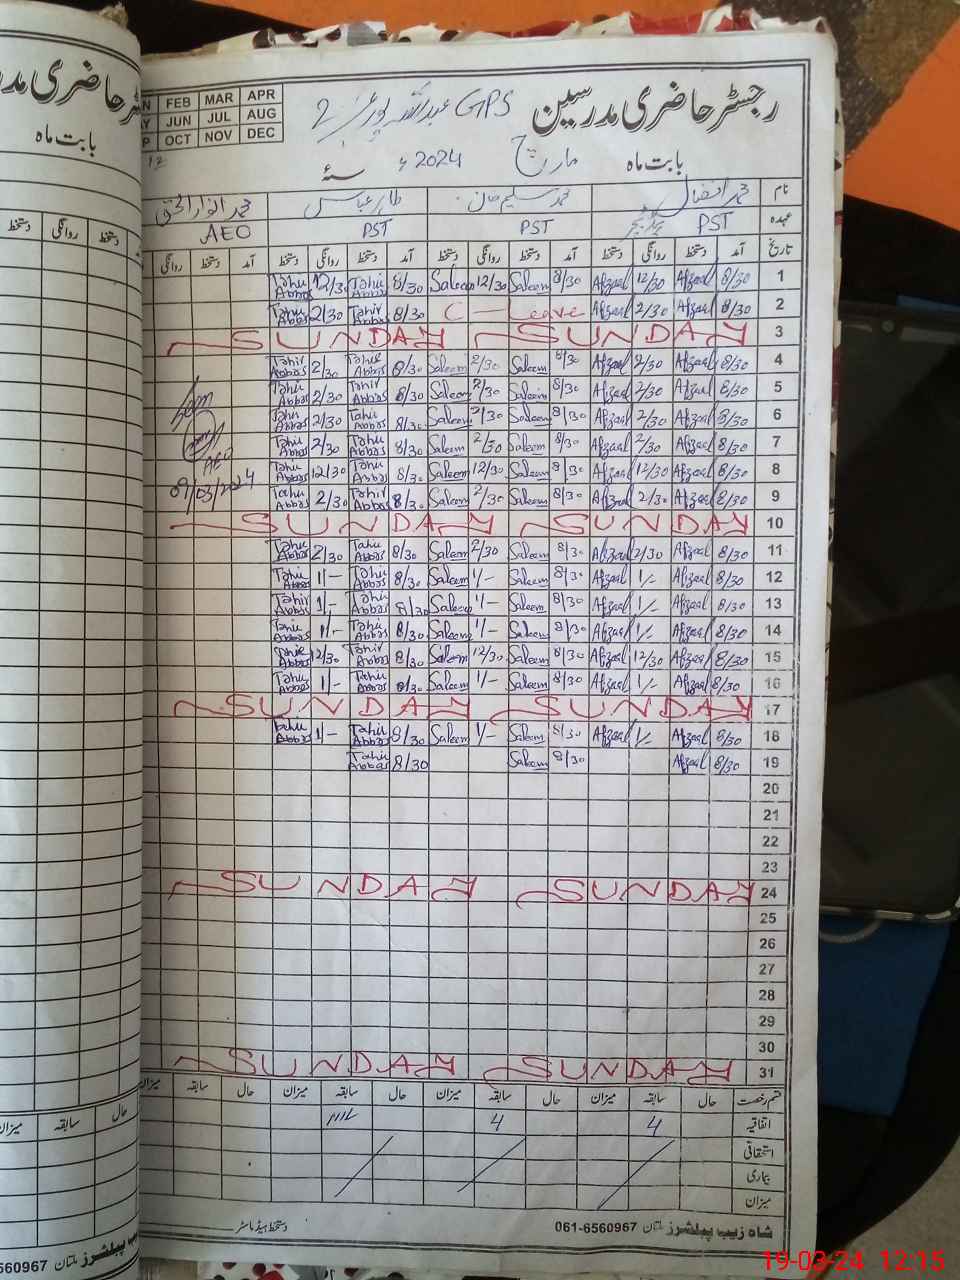 رجسٹر حاضری مدرسین
GPS عبداللہ پور غربی 2
JAN FEB MAR APR
MAY JUN JUL AUG
SEP OCT NOV DEC
بابت ماہ مارچ 2024ء
نام محمد افضال محمد سلیم خان طاہر عباس محمد انوار الحق
عہدہ PST PST PST AEO
تاریخ آمد دستخط روانگی دستخط آمد دستخط روانگی دستخط آمد دستخط روانگی دستخط آمد دستخط روانگی
1 8/30 Afzaal 12/30 Afzaal 8/30 Saleem 12/30 Saleem 8/30 Tahir Abbas 12/30 Tahir Abbas
2 8/30 Afzaal 2/30 Afzaal C - Leave 8/30 Tahir Abbas 2/30 Tahir Abbas
3 SUNDAY SUNDAY
4 8/30 Afzaal 2/30 Afzaal 8/30 Saleem 2/30 Saleem 8/30 Tahir Abbas 2/30 Tahir Abbas
5 8/30 Afzaal 2/30 Afzaal 8/30 Saleem 2/30 Saleem 8/30 Tahir Abbas 2/30 Tahir Abbas
6 8/30 Afzaal 2/30 Afzaal 8/30 Saleem 2/30 Saleem 8/30 Tahir Abbas 2/30 Tahir Abbas
7 8/30 Afzaal 2/30 Afzaal 8/30 Saleem 2/30 Saleem 8/30 Tahir Abbas 2/30 Tahir Abbas
AEO
8 8/30 Afzaal 12/30 Afzaal 8/30 Saleem 12/30 Saleem 8/30 Tahir Abbas 12/30 Tahir Abbas
9 8/30 Afzaal 2/30 Afzaal 8/30 Saleem 2/30 Saleem 8/30 Tahir Abbas 2/30 Tahir Abbas 09/03/2024
10 SUNDAY SUNDAY
11 8/30 Afzaal 2/30 Afzaal 8/30 Saleem 2/30 Saleem 8/30 Tahir Abbas 2/30 Tahir Abbas
12 8/30 Afzaal 1/- Afzaal 8/30 Saleem 1/- Saleem 8/30 Tahir Abbas 1/- Tahir Abbas
13 8/30 Afzaal 1/- Afzaal 8/30 Saleem 1/- Saleem 8/30 Tahir Abbas 1/- Tahir Abbas
14 8/30 Afzaal 1/- Afzaal 8/30 Saleem 1/- Saleem 8/30 Tahir Abbas 1/- Tahir Abbas
15 8/30 Afzaal 12/30 Afzaal 8/30 Saleem 12/30 Saleem 8/30 Tahir Abbas 12/30 Tahir Abbas
16 8/30 Afzaal 1/- Afzaal 8/30 Saleem 1/- Saleem 8/30 Tahir Abbas 1/- Tahir Abbas
17 SUNDAY SUNDAY
18 8/30 Afzaal 1/- Afzaal 8/30 Saleem 1/- Saleem 8/30 Tahir Abbas 1/- Tahir Abbas
19 8/30 Afzaal 8/30 Saleem 8/30 Tahir Abbas
20
21
22
23
24 SUNDAY SUNDAY
25
26
27
28
29
30
31 SUNDAY SUNDAY
قسم رخصت حال سابقہ میزان حال سابقہ میزان حال سابقہ میزان حال سابقہ میزان
اتفاقیہ 4 4
استحقاقی
بیماری
میزان
دستخط ہیڈ ماسٹر
شاہ زیب پبلشرز ملتان 061-6560967
19-03-24 12:15